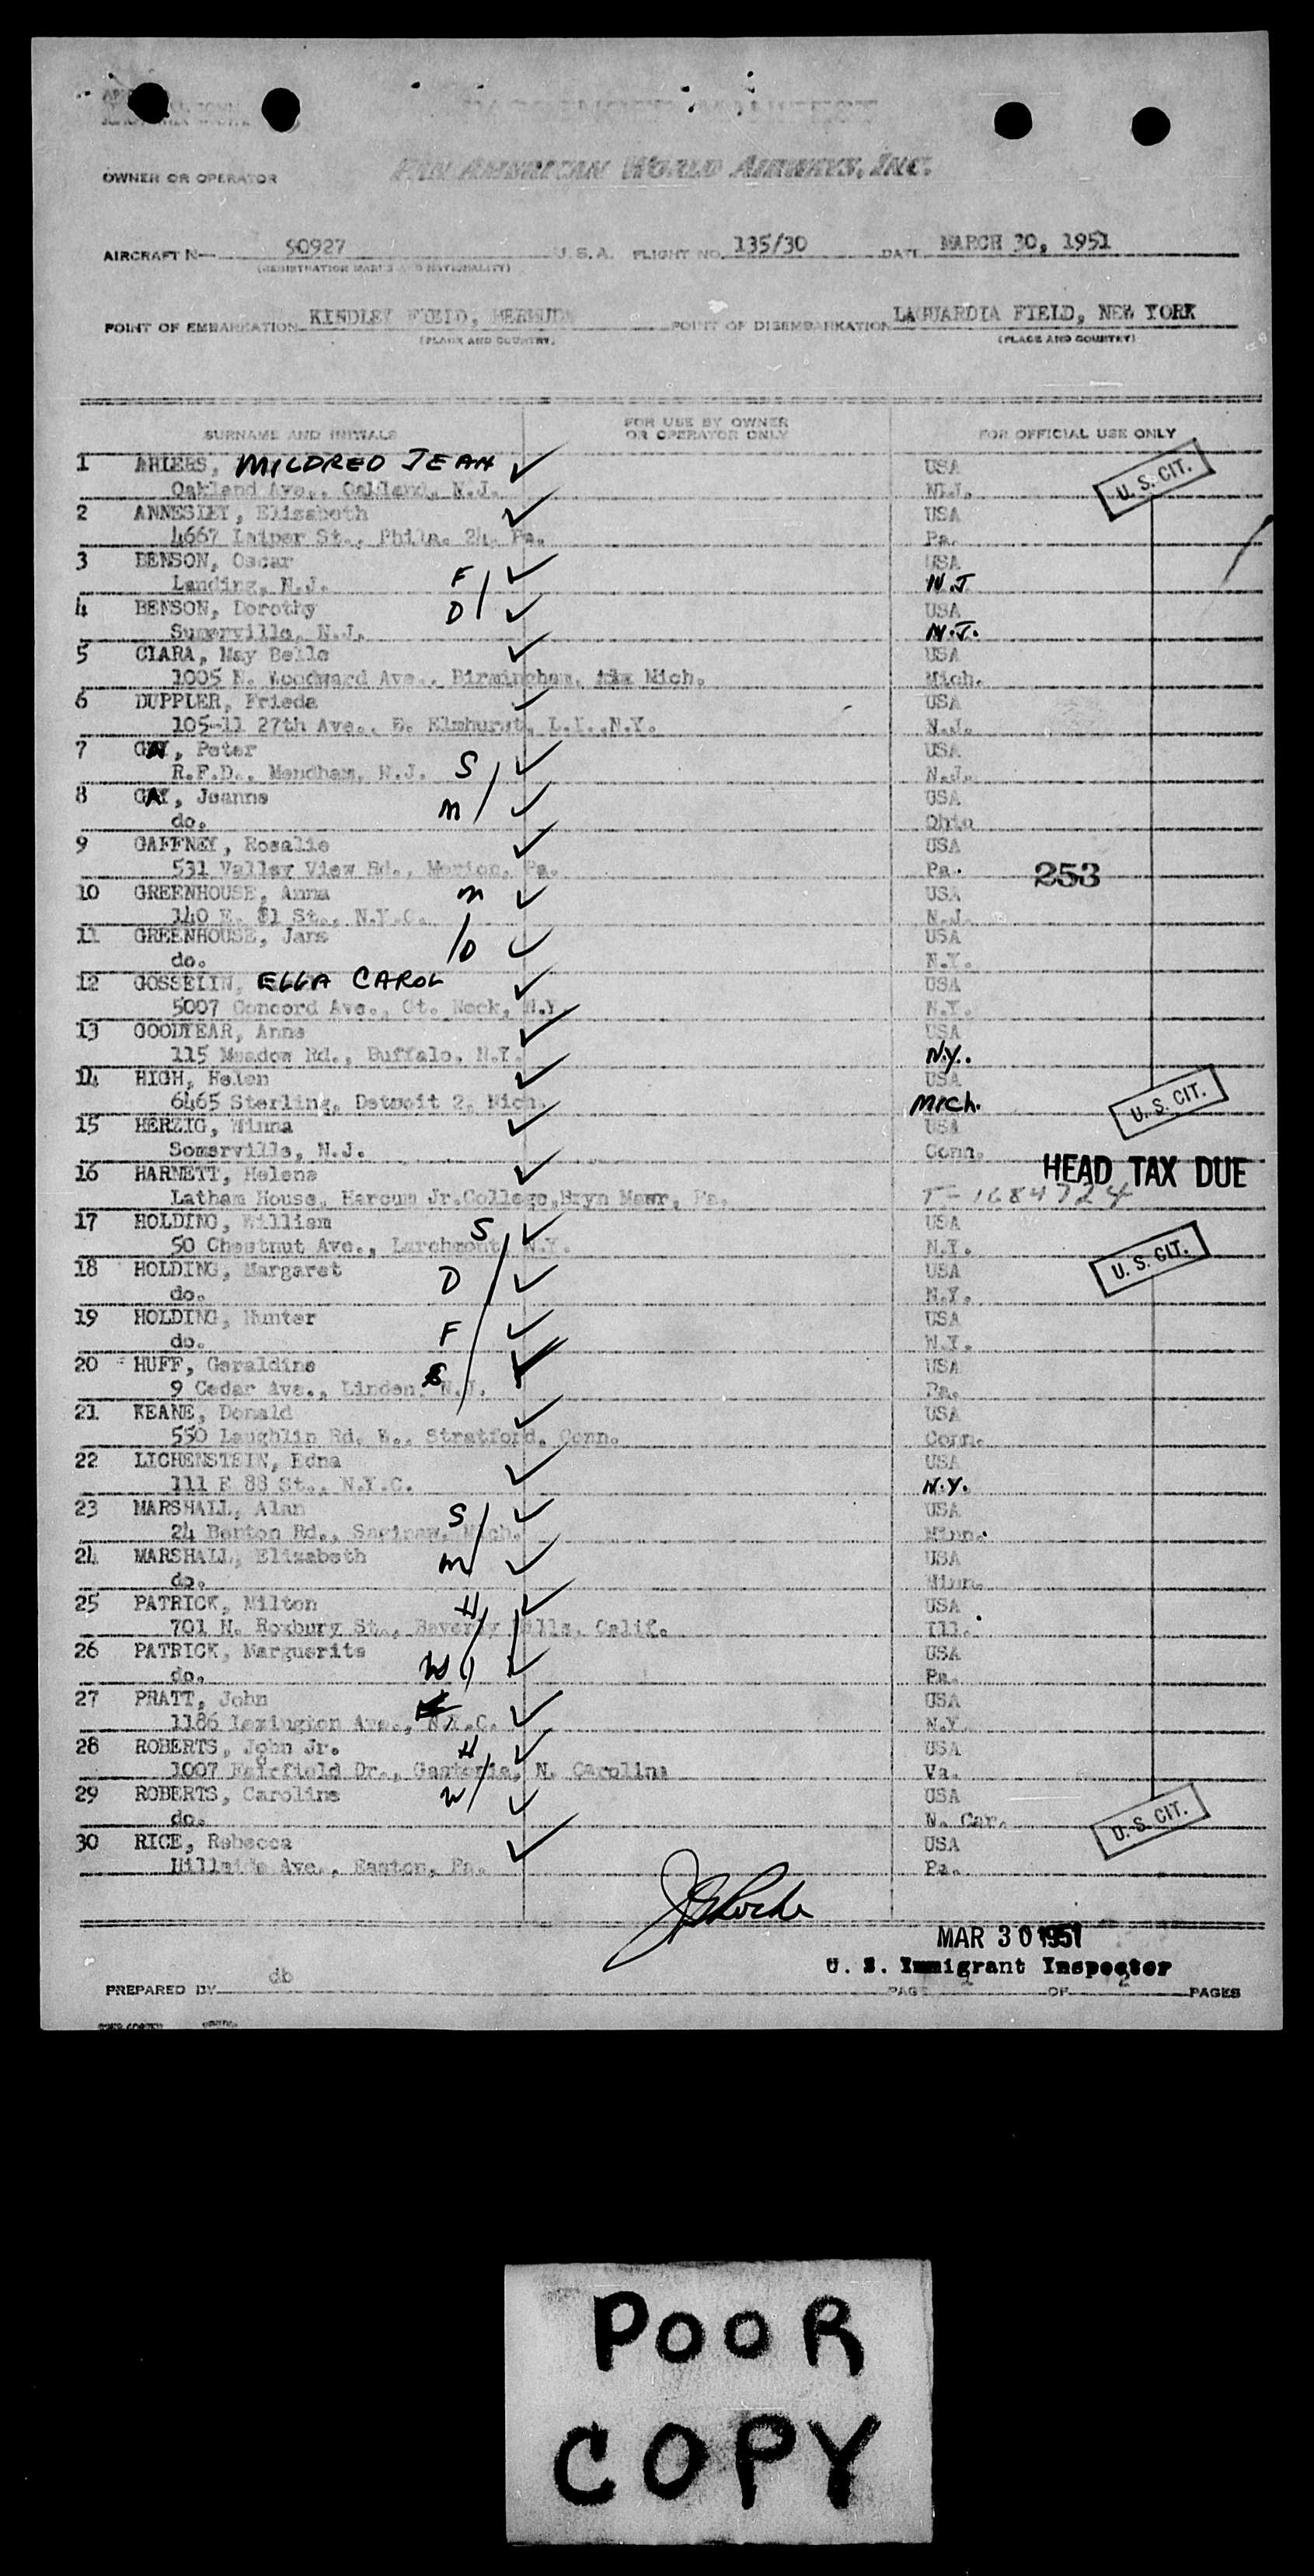 PASSENGER MANIFEST
OWNER OR OPERATOR PAN AMERICAN WORLD AIRWAYS, INC.
AIRCRAFT N— 90927 U.S.A. FLIGHT NO. 135/30 DATE MARCH 30, 1951
(REGISTRATION MARKS AND NATIONALITY)
POINT OF EMBARKATION KINDLEY FIELD, BERMUDA POINT OF DISEMBARKATION LAGUARDIA FIELD, NEW YORK
(PLACE AND COUNTRY) (PLACE AND COUNTRY)
SURNAME AND INITIALS FOR USE BY OWNER OR OPERATOR ONLY FOR OFFICIAL USE ONLY
1 AHLERS, MILDRED JEAN ✓ USA U. S. CIT.
Oakland Ave., Oakland, N.J. N.J.
2 ANNESLEY, Elizabeth ✓ USA
4667 Leiper St., Phila. 24, Pa. Pa.
3 BENSON, Oscar F ✓ USA
Landing, N.J. N.J
4 BENSON, Dorothy D ✓ USA
Somerville, N.J. N.J.
5 CLARA, May Belle ✓ USA
1005 N. Woodward Ave., Birmingham, Mich. Mich.
6 DUPPLER, Frieda ✓ USA
105-11 27th Ave., E. Elmhurst, L.I.,N.Y. N.J.
7 GAY, Peter S ✓ USA
R.F.D., Mendham, N.J. N.J.
8 GAY, Jeanne M ✓ USA
do. Ohio
9 GAFFNEY, Rosalie ✓ USA
531 Valley View Rd., Merion, Pa. Pa. 253
10 GREENHOUSE, Anna M ✓ USA
140 E. 81 St., N.Y.C. N.J.
11 GREENHOUSE, Jane D ✓ USA
do. N.Y.
12 GOSSELIN, ELLA CAROL ✓ USA
5007 Concord Ave., Gt. Neck, N.Y. N.Y.
13 GOODYEAR, Anne ✓ USA
115 Meadow Rd., Buffalo, N.Y. N.Y.
14 HIGH, Helen ✓ USA
6465 Sterling, Detroit 2, Mich. Mich. U. S. CIT.
15 HERZIG, Winna ✓ USA
Somerville, N.J. Conn.
16 HARNETT, Helene ✓ HEAD TAX DUE
Latham House, Harcum Jr.College,Bryn Mawr, Pa. T-1684724
17 HOLDING, William S ✓ USA
50 Chestnut Ave., Larchmont, N.Y. N.Y. U. S. CIT.
18 HOLDING, Margaret D ✓ USA
do. N.Y.
19 HOLDING, Hunter F ✓ USA
do. N.Y.
20 HUFF, Geraldine ✓ USA
9 Cedar Ave., Linden, N.J. Pa.
21 KEANE, Donald ✓ USA
550 Laughlin Rd. W., Stratford, Conn. Conn.
22 LICHENSTEIN, Edna ✓ USA
111 E 88 St., N.Y.C. N.Y.
23 MARSHALL, Alan S ✓ USA
24 Benton Rd., Saginaw, Mich. Minn.
24 MARSHALL, Elizabeth M ✓ USA
do. Minn.
25 PATRICK, Milton H ✓ USA
701 N. Roxbury St., Beverly Hills, Calif. Ill.
26 PATRICK, Marguerite W ✓ USA
do. Pa.
27 PRATT, John ✓ USA
1186 Lexington Ave., N.Y.C. N.Y.
28 ROBERTS, John Jr. H ✓ USA
1007 Fairfield Dr., Gastonia, N. Carolina Va.
29 ROBERTS, Caroline W ✓ USA
do. N. Car. U. S. CIT.
30 RICE, Rebecca ✓ USA
Hillside Ave., Easton, Pa. Pa.
MAR 30 1951
U. S. Immigrant Inspector
PREPARED BY db PAGE OF 2 PAGES
POOR
COPY